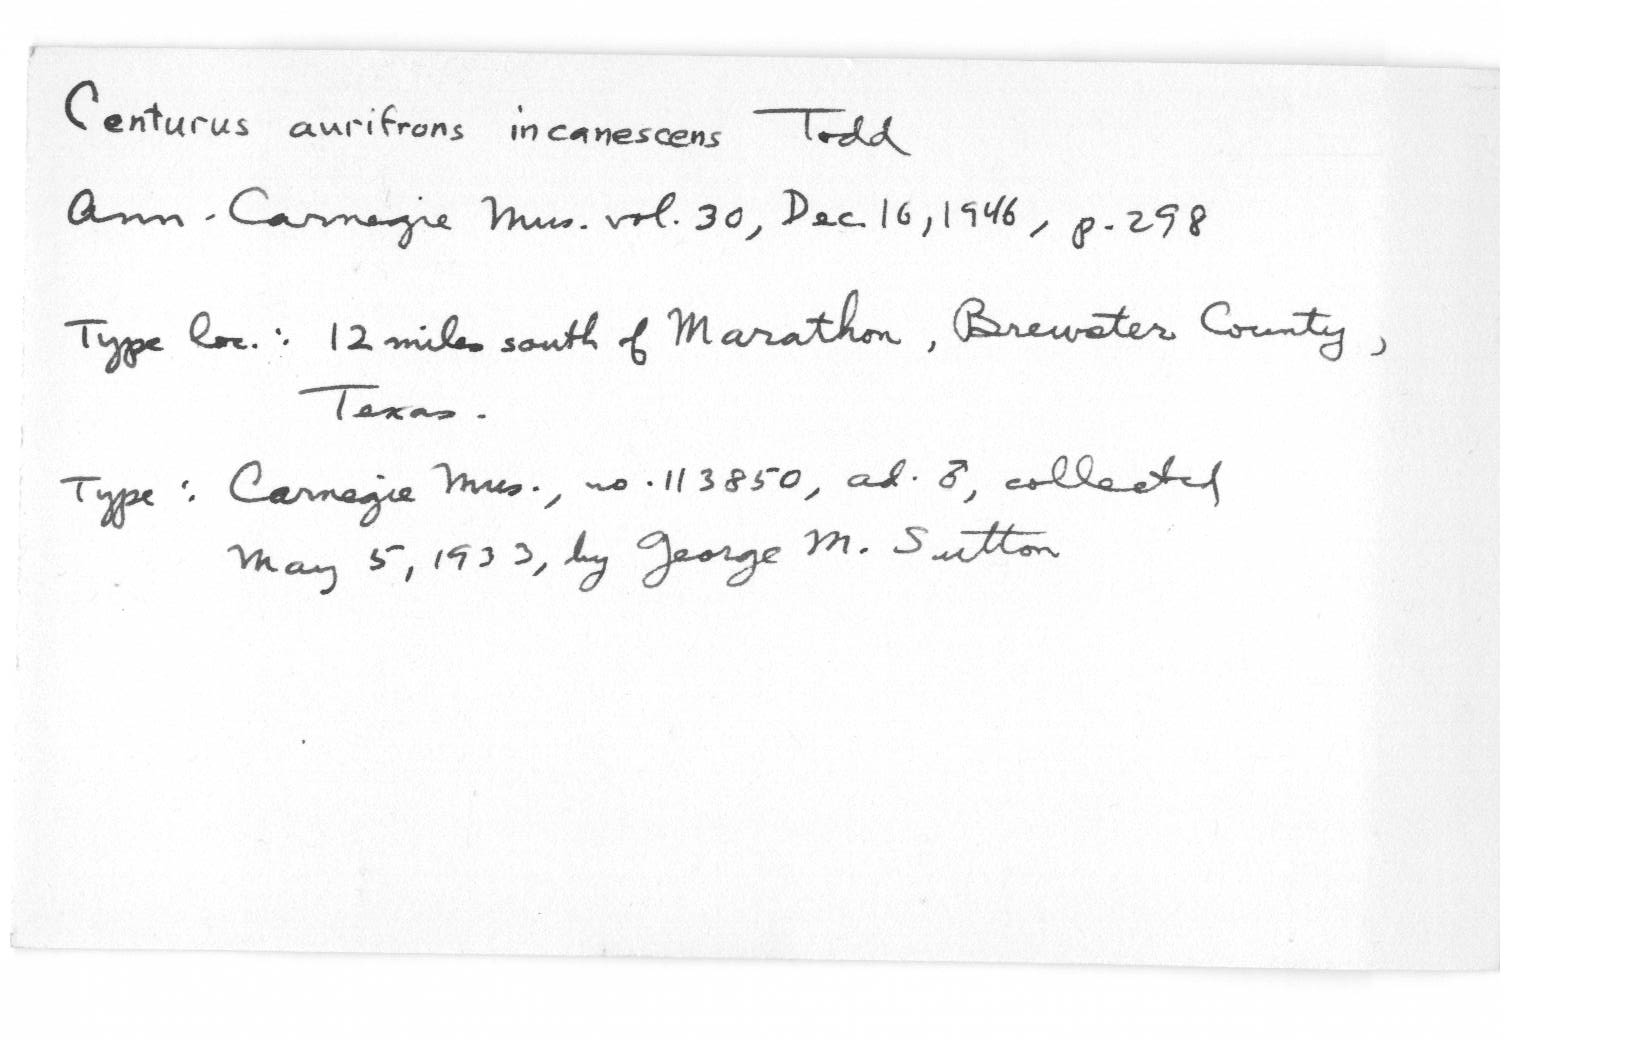 Centurus aurifrons incanescens Todd
Ann. Carnegie Mus. vol. 30, Dec. 16, 1946, p. 298
Type loc.: 12 miles south of Marathon, Brewster County,
Texas.
Type: Carnegie Mus., no. 113850, ad. ♂, collected
May 5, 1933, by George M. Sutton